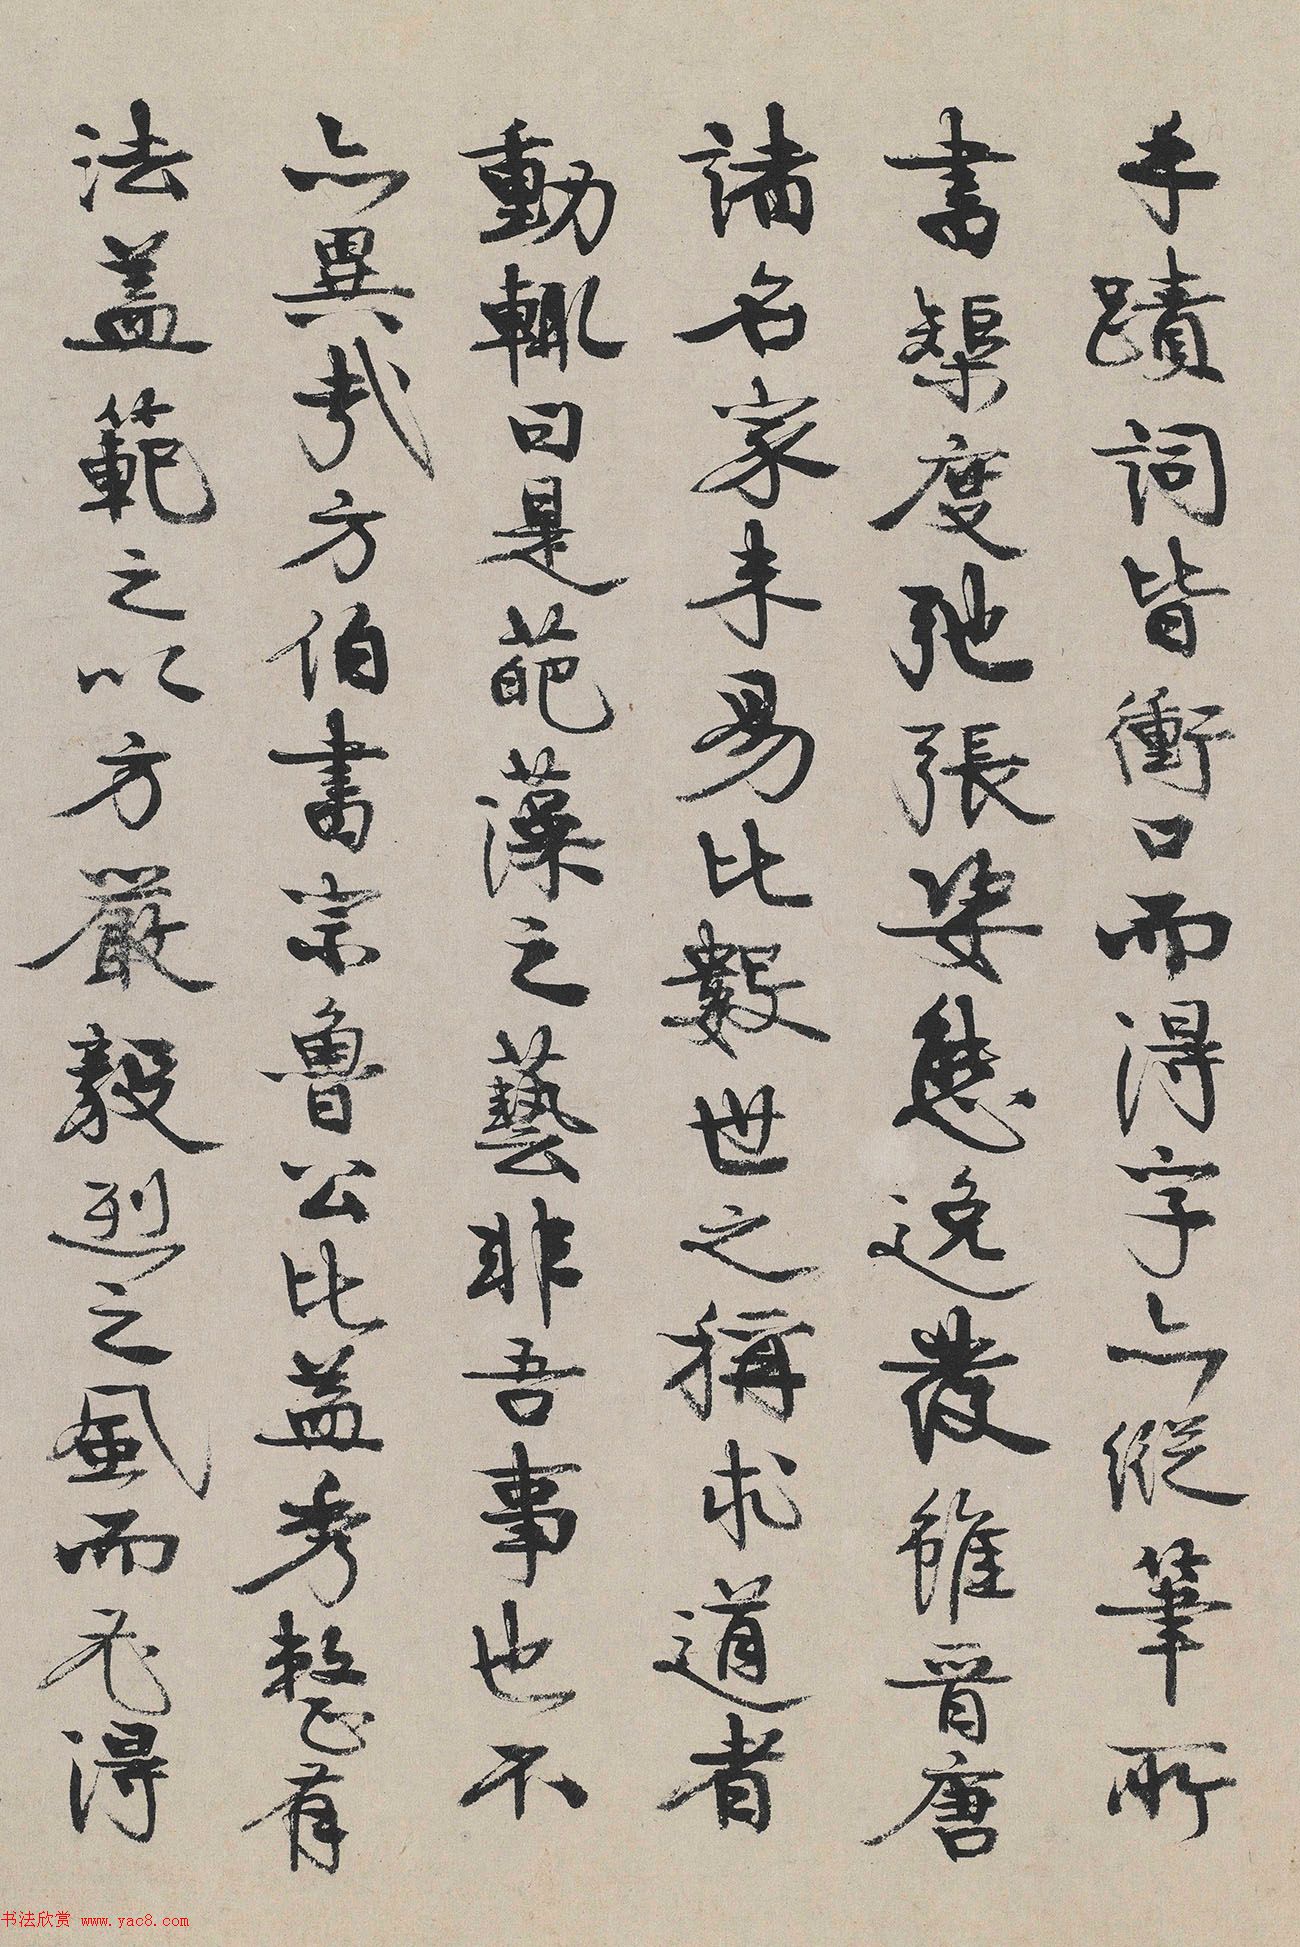 手蹟詞皆衝口而得字亦縱筆所
書榘度弛張姿態逸發雖晉唐
諸名家未易比數世之稱求道者
動輒曰是葩藻之藝非吾事也不
亦異哉方伯書宗魯公比益秀整有
法蓋範之以方嚴毅烈之風而不得
书法欣赏 www.yac8.com